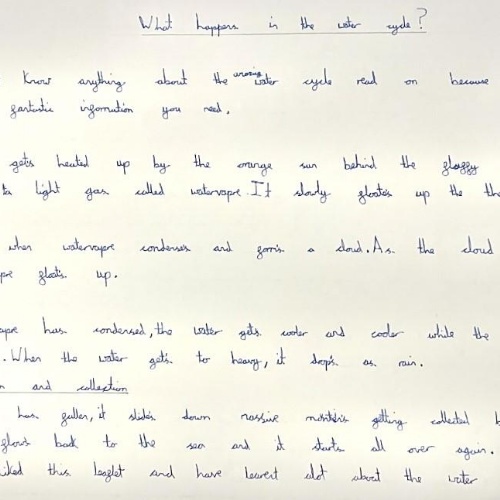 What happens in the water cycle?
Know anything about the amazing water cycle read on because
fantastic information you need.
gets heated up by the orange sun behind the
light gas called watervapre. It slowly floats up the
when watervapre condenses and forms a cloud. As the cloud
pre floats up.
apre has condensed, the water gets cooler and cooler while the
. When the water gets to heavy, it drops as rain.
n and collection
has fallen, it slides down massive getting collected
flows back to the sea and it starts all over again.
liked this leaflet and have learnt alot about the water